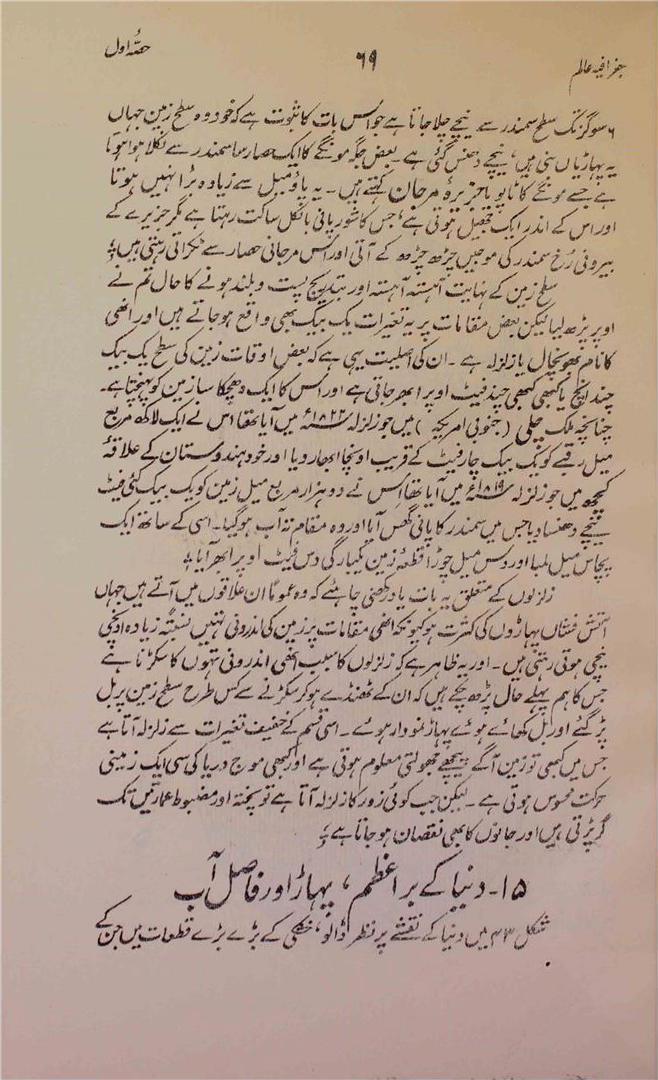 جغرافیہ عالم
۶۹
حصّہ اول
۶ سو گز تک سطح سمندر سے نیچے چلا جاتا ہے جو اس بات کا ثبوت ہے کہ خود وہ سطح زمین جہاں
یہ پہاڑیاں بنی ہیں، نیچے دھنس گئی ہے۔ بعض جگہ مونگے کا ایک حصار سا سمندر سے نکلا ہوا ہوتا
ہے جسے مونگے کا ٹاپو یا جزیرۂ مرجان کہتے ہیں۔ یہ پاؤ میل سے زیادہ بڑا نہیں ہوتا
اور اس کے اندر ایک جھیل ہوتی ہے، جس کا شور پانی بالکل ساکت رہتا ہے مگر جزیرے کے
بیرونی رُخ سمندر کی موجیں چڑھ چڑھ کے آتی اور اس مرجانی حصار سے ٹکراتی رہتی ہیں؛
سطح زمین کے نہایت آہستہ آہستہ اور بتدریج پست و بلند ہونے کا حال تم نے
اوپر پڑھ لیا لیکن بعض مقامات پر یہ تغیرات یک بیک بھی واقع ہو جاتے ہیں اور انھی
کا نام بھونچال یا زلزلہ ہے۔ ان کی اصلیت یہی ہے کہ بعض اوقات زمین کی سطح یک بیک
چند انچ یا کبھی کبھی چند فیٹ اوپر ابھر جاتی ہے اور اس کا ایک دھچکا سا زمین کو پہنچتا ہے۔
چنانچہ ملک چلی (جنوبی امریکہ) میں جو زلزلہ ۱۸۲۲ء میں آیا تھا اس نے ایک لاکھ مربع
میل رقبے کو یک بیک چار فیٹ کے قریب اونچا ابھار دیا اور خود ہندوستان کے علاقۂ
کچھ میں جو زلزلہ ۱۸۱۹ء میں آیا تھا اس نے دو ہزار مربع میل زمین کو یک بیک کئی فیٹ
نیچے دھنسا دیا جس میں سمندر کا پانی گھس آیا اور وہ مقام تہ آب ہو گیا۔ اسی کے ساتھ ایک
پچاس میل لمبا اور دس میل چوڑا قطعۂ زمین یکبارگی دس فیٹ اوپر ابھر آیا؛
زلزلوں کے متعلق یہ بات یاد رکھنی چاہئے کہ وہ عموماً ان علاقوں میں آتے ہیں جہاں
آتش فشاں پہاڑوں کی کثرت ہو کیونکہ انھی مقامات پر زمین کی اندرونی تہیں نسبتہً زیادہ اونچی
نیچی ہوتی رہتی ہیں۔ اور یہ ظاہر ہے کہ زلزلوں کا سبب انھی اندرونی تہوں کا سکڑنا ہے
جس کا ہم پہلے حال پڑھ چکے ہیں کہ ان کے ٹھنڈے ہو کر سکڑنے سے کس طرح سطح زمین پر بل
پڑ گئے اور بل کھائے ہوئے پہاڑ نمودار ہوئے۔ اسی قسم کے خفیف تغیرات سے زلزلہ آتا ہے
جس میں کبھی تو زمین آگے پیچھے جھولتی معلوم ہوتی ہے اور کبھی موج دریا کی سی ایک زمینی
حرکت محسوس ہوتی ہے۔ لیکن جب کوئی زور کا زلزلہ آتا ہے تو پختہ اور مضبوط عمارتیں تک
گر پڑتی ہیں اور جانوں کا بھی نقصان ہو جاتا ہے؛
۱۵۔ دنیا کے براعظم، پہاڑ اور فاصل آب
شکل ۴۳ میں دنیا کے نقشے پر نظر ڈالو، خشکی کے بڑے بڑے قطعات میں جن کے